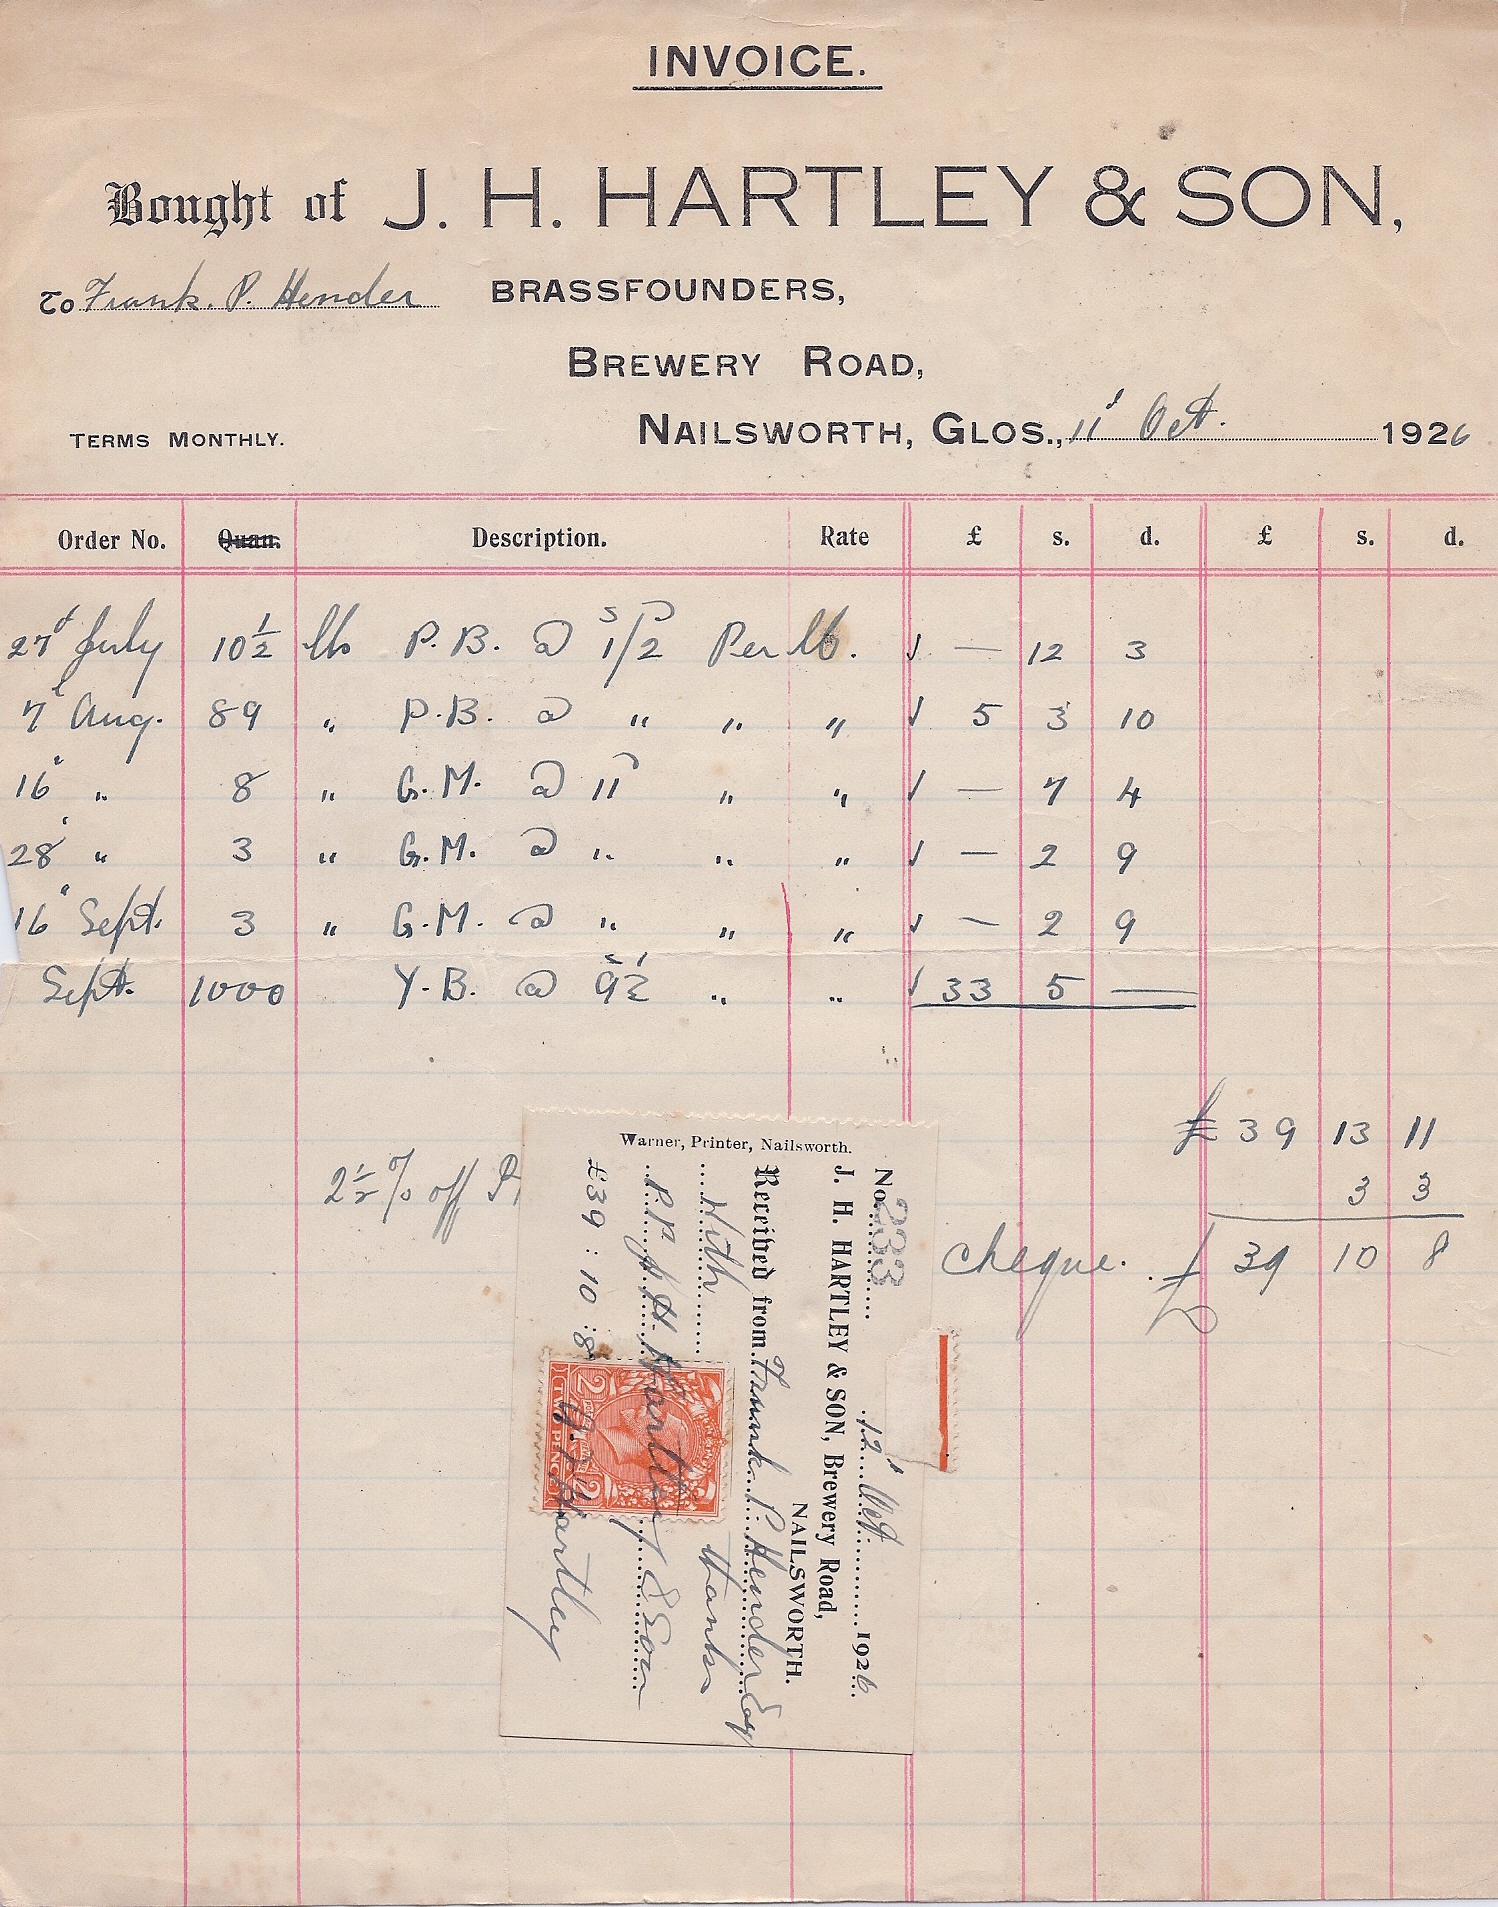 INVOICE.
Bought of J. H. HARTLEY & SON,
To Frank. P. Hender BRASSFOUNDERS,
BREWERY ROAD,
TERMS MONTHLY. NAILSWORTH, GLOS., 11' Oct. 1926
Order No. Quan. Description. Rate £ s. d. £ s. d.
27' July 10½ lbs P.B. @ 1/2 Per lb. ✓ — 12 3
7' Aug. 89 " P.B. @ " " " ✓ 5 3 10
16" " 8 " G.M. @ 11 " " ✓ — 7 4
28' " 3 " G.M. @ " " " ✓ — 2 9
16" Sept. 3 " G.M. @ " " " ✓ — 2 9
Sept. 1000 Y.B. @ 9½ " " ✓ 33 5 —
£ 39 13 11
2½% off 3 3
Cheque. £ 39 10 8
Warner, Printer, Nailsworth.
No. 233 12' Oct 1926
J. H. HARTLEY & SON, Brewery Road,
NAILSWORTH.
Received from Frank P Hender Esq
With thanks
P.P. J.H. Hartley & Son
£39 : 10 : 8
Hartley
POSTAGE REVENUE
2 2
TWO PENCE